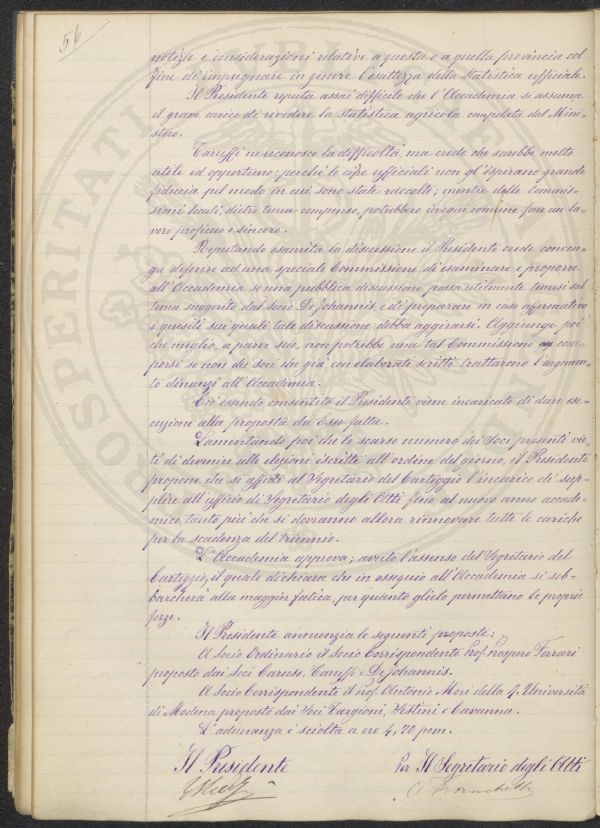 56
notizie e considerazioni relative a questa o a quella provincia col
fine di impugnare in genere l'esattezza della statistica ufficiale.
Il Presidente reputa assai difficile che l'Accademia si assuma
il grave carico di rivedere la statistica agricola compilata dal Mini-
stero.
Taruffi ne riconosce la difficoltà, ma crede che sarebbe molto
utile ed opportuno: perchè le cifre ufficiali non gl'ispirano grande
fiducia pel modo in cui sono state raccolte; mentre delle Commis-
sioni locali, dietro tenue compenso, potrebbero in ogni comune fare un la-
voro proficuo e sincero.
Reputando esaurita la discussione il Presidente crede conven-
ga deferire ad una speciale Commissione di esaminare e proporre
all'Accademia se una pubblica discussione possa utilmente tenersi sul
tema suggerito dal Socio De Johannis, e di preparare in caso affermativo
i quesiti sui quali tale discussione debba aggirarsi. Aggiunge poi
che meglio, a parer suo, non potrebbe una tal Commissione com-
porsi se non dei soci che già con elaborati scritti trattarono l'argomen-
to dinanzi all'Accademia.
Ciò essendo consentito il Presidente viene incaricato di dare ese-
cuzione alla proposta da Esso fatta.
Lamentando poi che lo scarso numero dei Soci presenti vie-
ti di devenire alle elezioni iscritte all'ordine del giorno, il Presidente
propone che si affidi al Segretario del Carteggio l'incarico di sup-
plire all'ufficio di Segretario degli Atti fino al nuovo anno accade-
mico, tanto più che si dovranno allora rinnovare tutte le cariche
per la scadenza del triennio.
L'Accademia approva; avuto l'assenso del Segretario del
Carteggio, il quale dichiara che in ossequio all'Accademia si sob-
barcherà alla maggior fatica, per quanto glielo permettano le proprie
forze.
Il Presidente annunzia le seguenti proposte:
A Socio Ordinario il Socio Corrispondente Prof. Prospero Ferrari
proposto dai Soci Caruso, Taruffi e De Johannis.
A Socio Corrispondente il Prof. Antonio Mori della R. Università
di Modena proposto dai Soci Targioni, Sestini e Cavanna.
L'adunanza è sciolta a ore 4,20 pom.
Il Presidente
Per Il Segretario degli Atti
PROSPERITATI